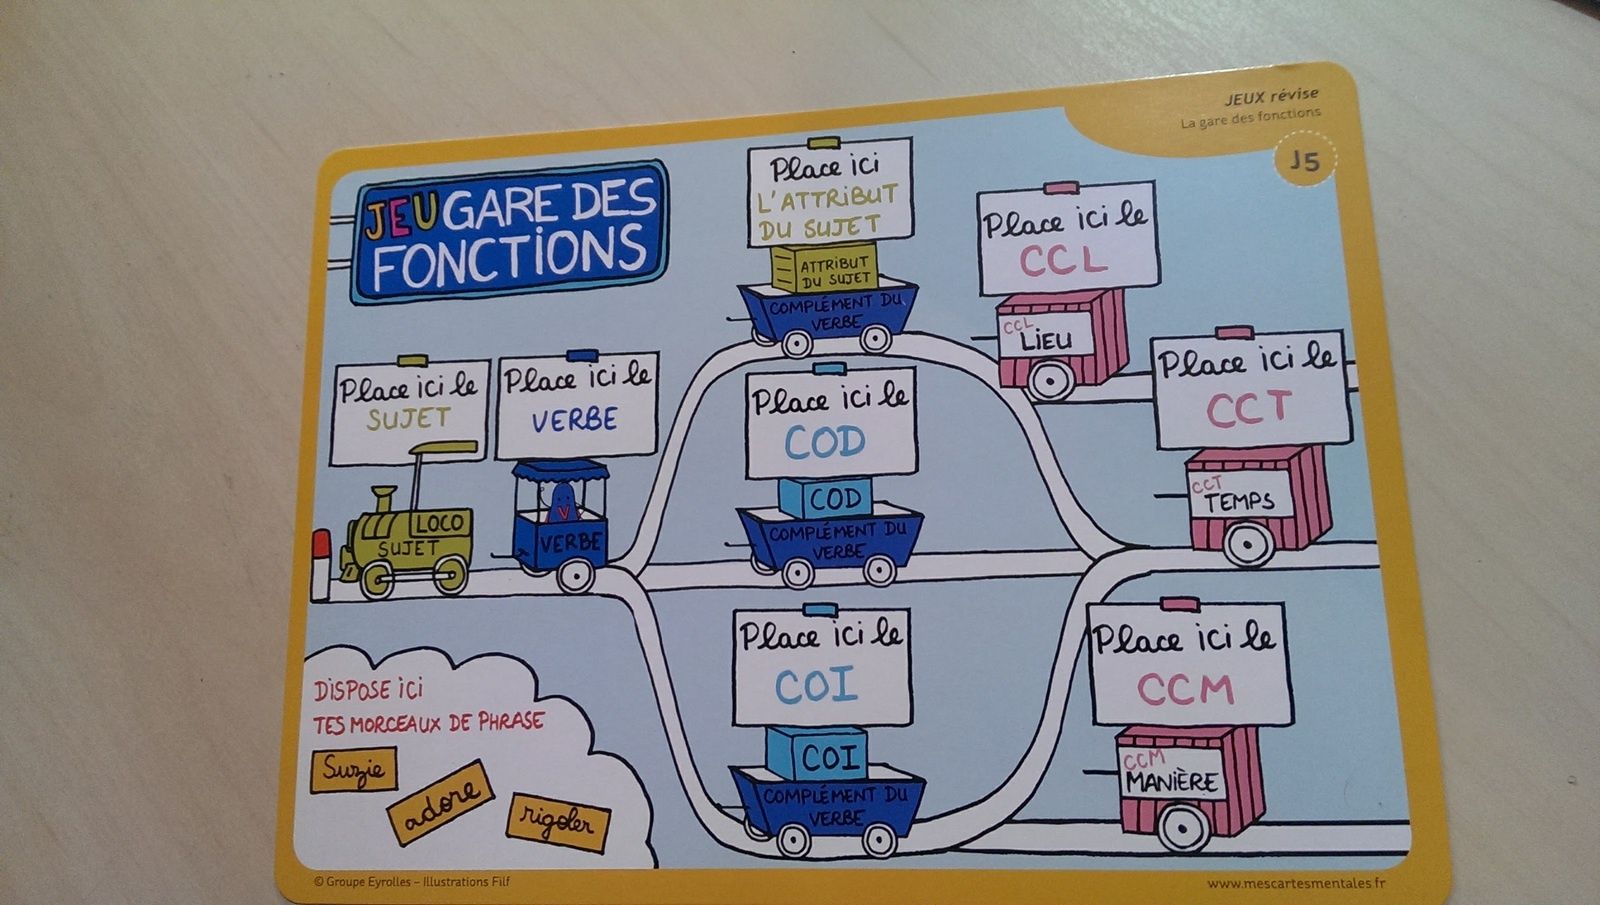 JEUX révise
La gare des fonctions
J5
JEU GARE DES
FONCTIONS
Place ici
L'ATTRIBUT
DU SUJET
ATTRIBUT
DU SUJET
COMPLÉMENT DU
VERBE
Place ici le
CCL
CCL
LIEU
Place ici le
CCT
CCT
TEMPS
Place ici le
SUJET
LOCO
SUJET
Place ici le
VERBE
V
VERBE
Place ici le
COD
COD
COMPLÉMENT DU
VERBE
Place ici le
COI
COI
COMPLÉMENT DU
VERBE
Place ici le
CCM
CCM
MANIÈRE
DISPOSE ICI
TES MORCEAUX DE PHRASE
Suzie
adore
rigoler
© Groupe Eyrolles – Illustrations Filf
www.mescartesmentales.fr